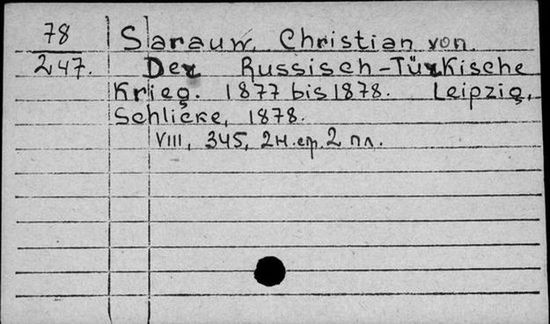 78
247.
Sarauw, Christian von.
Der Russisch-Türkische
Krieg. 1877 bis 1878. Leipzig,
Schlicke, 1878.
VIII, 345, 2 н. стр. 2 пл.